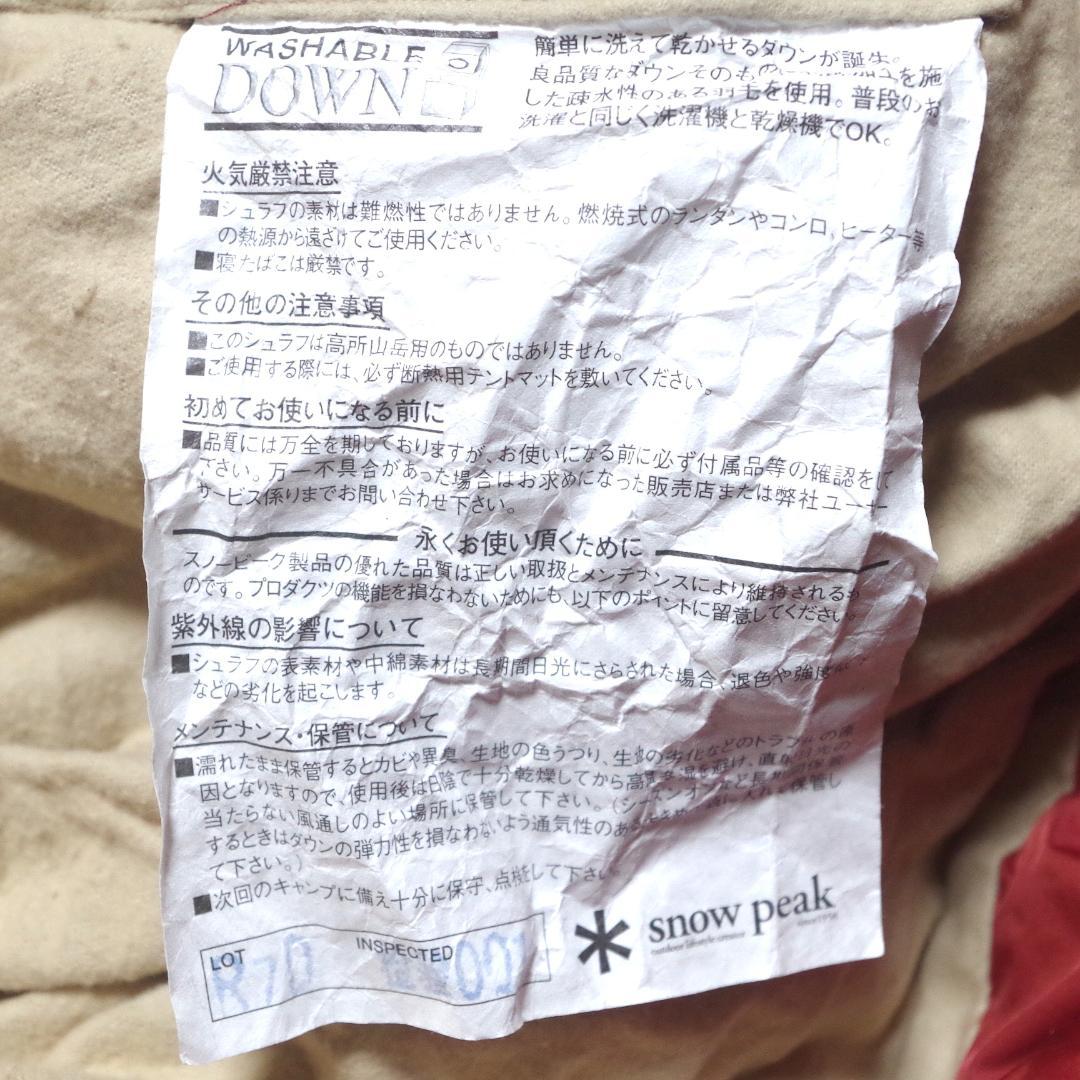 WASHABLE
DOWN
簡単に洗えて乾かせるダウンが誕生。
良品質なダウンそのものに を施
した疎水性のある羽毛を使用。普段のお
洗濯と同じく洗濯機と乾燥機でOK。
火気厳禁注意
■シュラフの素材は難燃性ではありません。燃焼式のランタンやコンロ、ヒーター等
の熱源から遠ざけてご使用ください。
■寝たばこは厳禁です。
その他の注意事項
■このシュラフは高所山岳用のものではありません。
■ご使用する際には、必ず断熱用テントマットを敷いてください。
初めてお使いになる前に
■品質には万全を期しておりますが、お使いになる前に必ず付属品等の確認をして
下さい。万一不具合があった場合はお求めになった販売店または弊社ユーザー
サービス係りまでお問い合わせ下さい。
永くお使い頂くために
スノーピーク製品の優れた品質は正しい取扱とメンテナンスにより維持されるも
のです。プロダクツの機能を損なわないためにも、以下のポイントに留意してください。
紫外線の影響について
■シュラフの表素材や中綿素材は長期間日光にさらされた場合、退色や強度
などの劣化を起こします。
メンテナンス・保管について
■濡れたまま保管するとカビや異臭、生地の色うつり、生地の劣化などのトラブルの原
因となりますので、使用後は日陰で十分乾燥してから高温多湿を避け、直射日光の
当たらない風通しのよい場所に保管して下さい。(シーズンオフなど長期
するときはダウンの弾力性を損なわないよう通気性のある 保管し
て下さい。)
■次回のキャンプに備え十分に保守、点検して下さい。
LOT
INSPECTED
snow peak
outdoor lifestyle creator
since1958